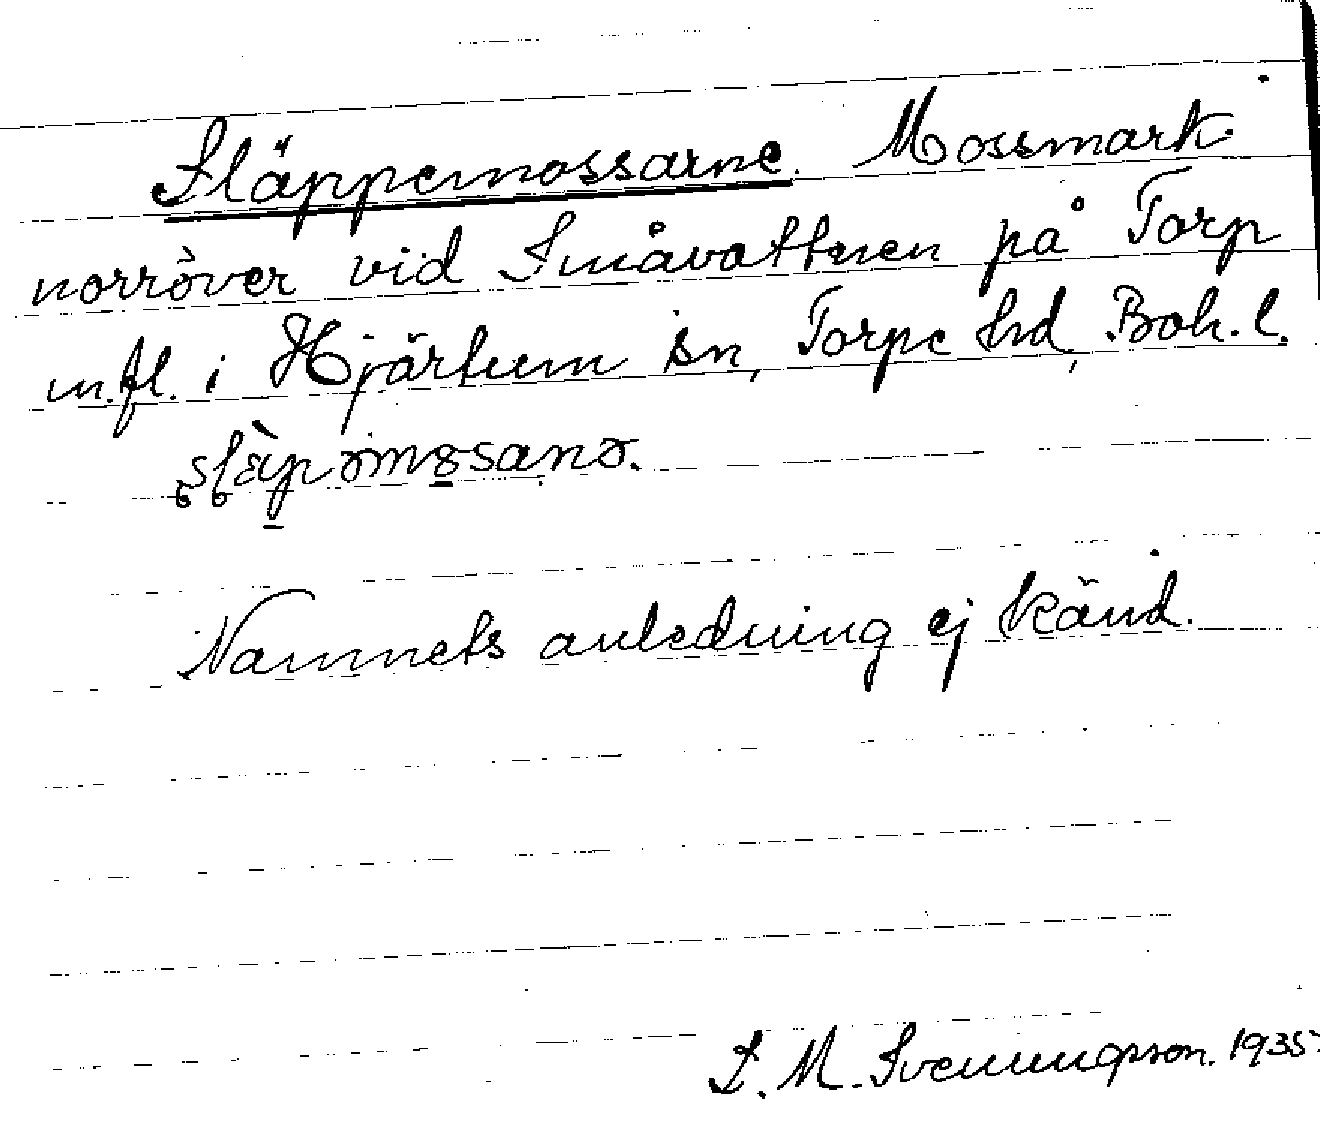 Släppemossarne. Mossmark
norröver vid Småvattnen på Torp
m.fl. i Hjärtum sn, Torpe hd, Boh. l.
Namnets anledning ej känd.
S. M. Svenungsson. 1935.